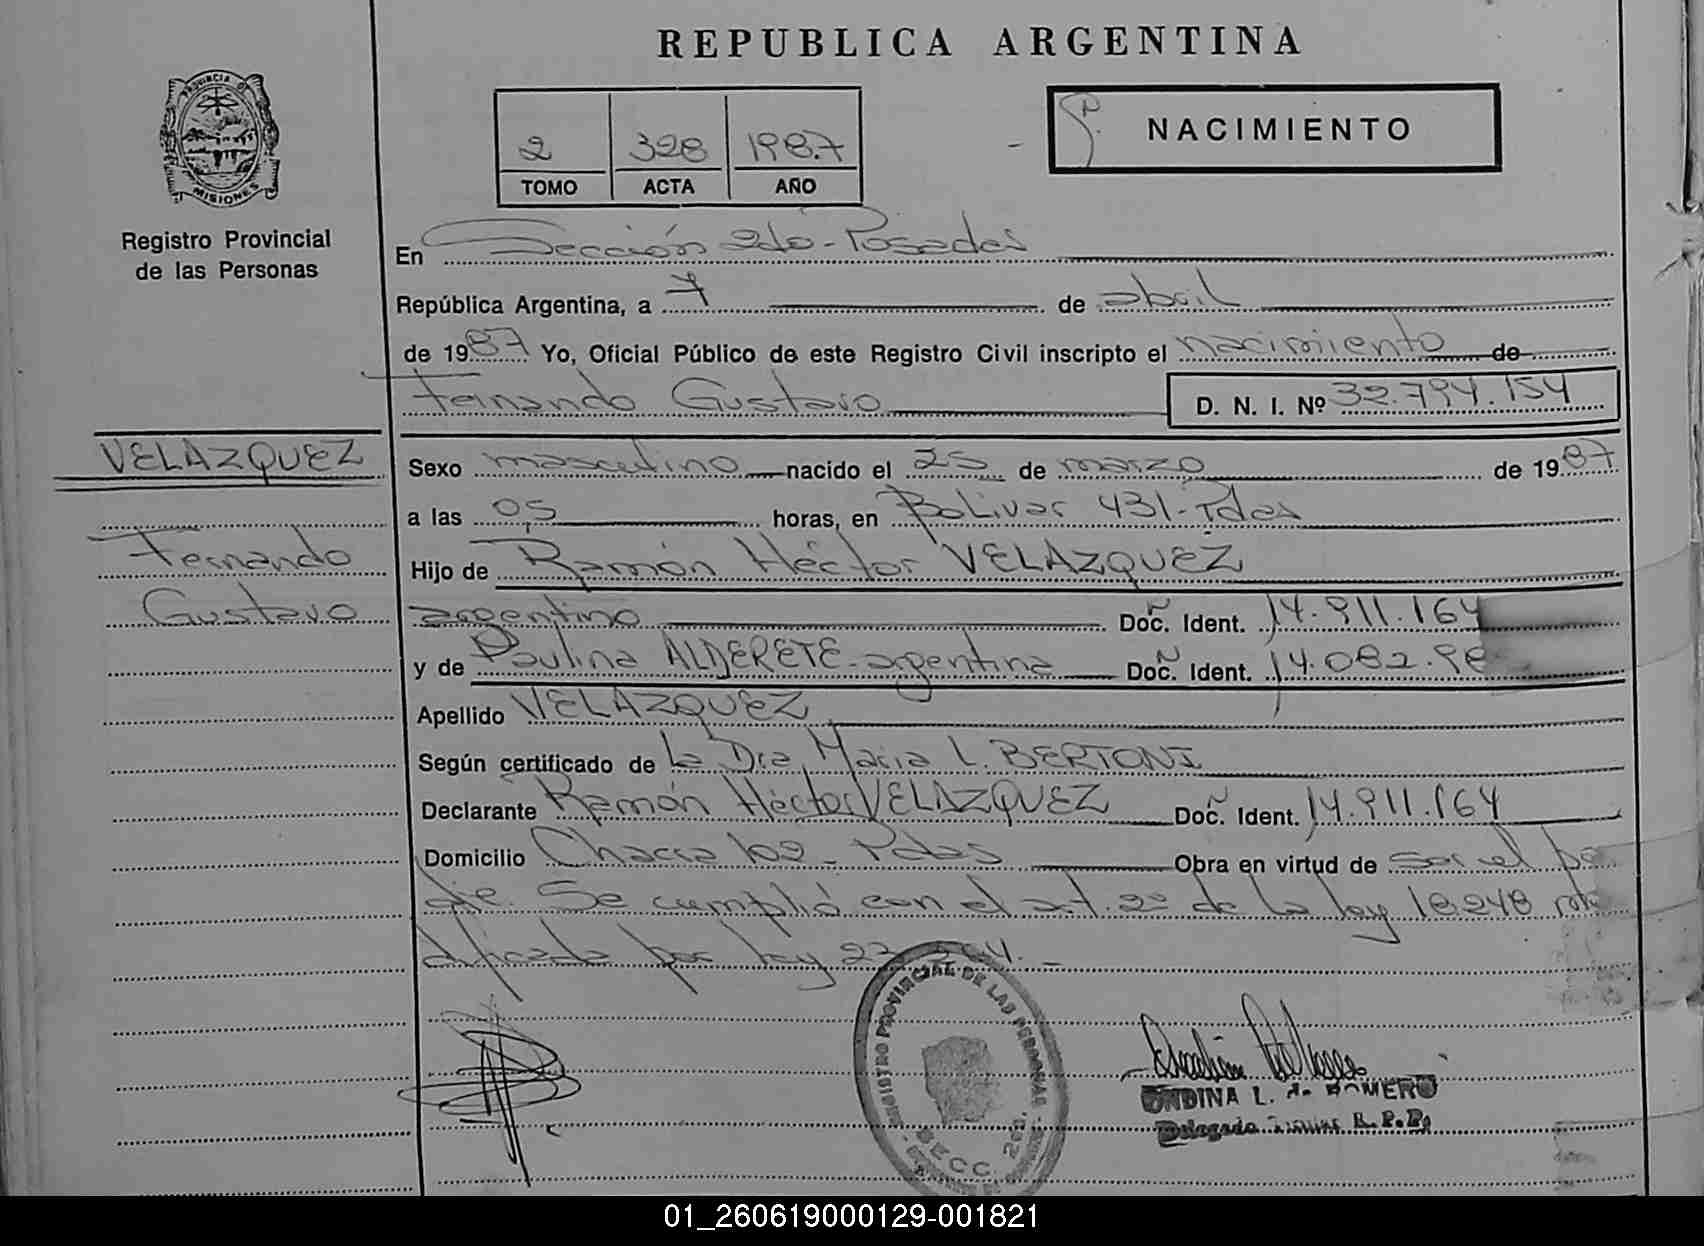 REPUBLICA ARGENTINA
PROVINCIA DE MISIONES
2 328 1987
TOMO ACTA AÑO
NACIMIENTO
Registro Provincial
de las Personas
En Sección 2do - Posadas
República Argentina, a 7 de abril
de 1987 Yo, Oficial Público de este Registro Civil inscripto el nacimiento de
Fernando Gustavo D. N. I. Nº 32.794.154
VELAZQUEZ
Fernando
Gustavo
Sexo masculino nacido el 25 de marzo de 1987
a las 05 horas, en Bolivar 431 - Pdas
Hijo de Ramón Héctor VELAZQUEZ
argentino Doc. Ident. 14.911.164
y de Paulina ALDERETE - argentina Doc. Ident. 14.082.98
Apellido VELAZQUEZ
Según certificado de la Dra María L. BERTONI
Declarante Ramón Héctor VELAZQUEZ Doc. Ident. 14.911.164
Domicilio Chacra 102 - Pdas Obra en virtud de ser el pa
dre. Se cumplió con el art. 2º de la ley 18248 mo
dificada por ley
REGISTRO PROVINCIAL DE LAS PERSONAS
SECC. 2da.
ONDINA L. de ROMERO
Delegada Titular R. P. P.
01_260619000129-001821